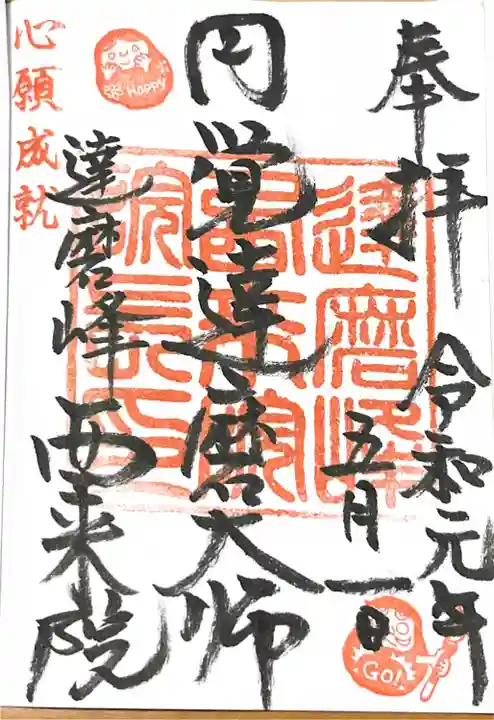 奉拝
令和元年
五月一日
円覚達磨大師
達磨峰 西来院
心願成就
Happy
GO!